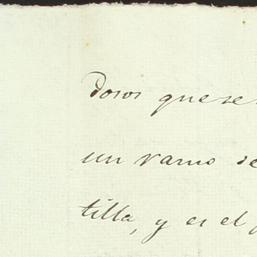 dosos que se
un ramo de
tilla, y es el